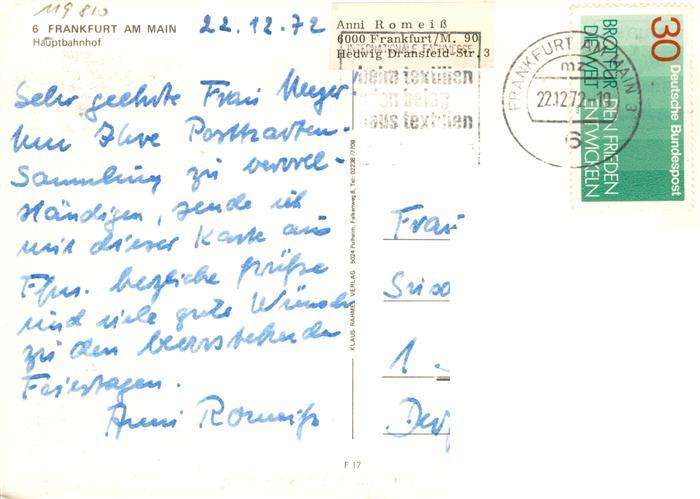 119 810
6 FRANKFURT AM MAIN
Hauptbahnhof
22.12.72
Anni Romeiß
6000 Frankfurt/M. 90
Hedwig Dransfeld-Str. 3
INTERNATIONALE FACHMESSE
heimtextilien
haustextilien
FRANKFURT AM MAIN 3
mz
22.12.72
6
30
Deutsche Bundespost
BROT FÜR DIE WELT
DEN FRIEDEN ENTWICKELN
Sehr geehrte Frau
um Ihre Postkarten-
Sammlung zu vervoll-
ständigen, sende ich
mit dieser Karte aus
Ffm. herzliche Grüße
und viele gute Wünsche
zu den bevorstehenden
Feiertagen.
Anni Romeiß
KLAUS RAHMEL VERLAG 5024 Pulheim, Falkenweg 8, Tel: 02238/7759
Frau
1
F 17